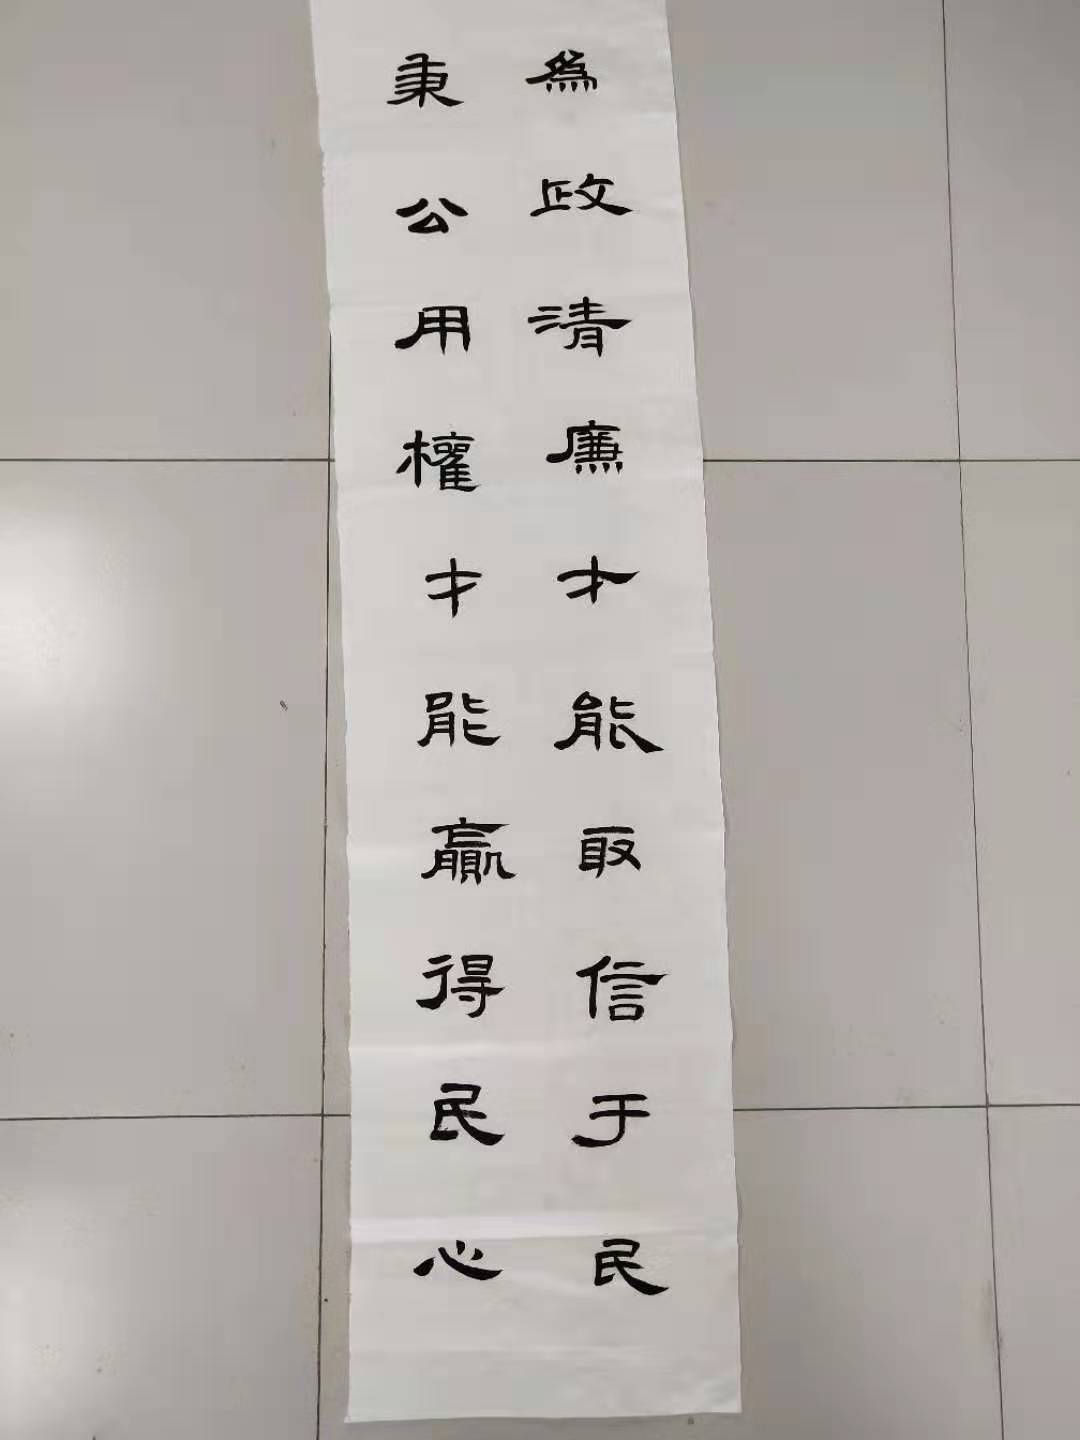 為政清廉才能取信于民
秉公用權才能贏得民心